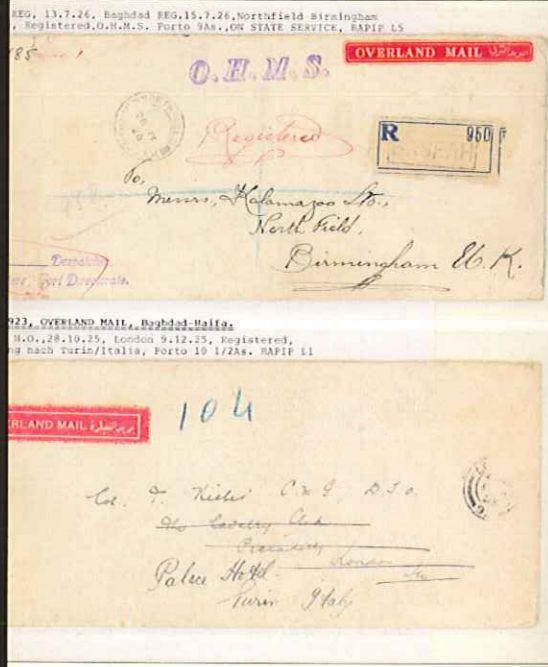 REG, 13.7.26, Baghdad REG.15.7.26,Northfield Birmingham
, Registered,O.H.M.S. Porto 9As.,ON STATE SERVICE, BAPIP L5
OVERLAND MAIL
O.H.M.S.
Registered
R 950
BASRAH
To,
Messrs, Kalamazoo Ltd.,
North Field,
Birmingham U.K.
Despatch
Port Directorate.
923, OVERLAND MAIL, Baghdad-Haifa.
H.O.,28.10.25, London 9.12.25, Registered,
ng nach Turin/Italia, Porto 10 1/2As. BAPIP L1
ERLAND MAIL
104
Col. C M G D.S.O.
Cavalry Club
Piccadilly
London
Palace Hotel
Turin Italy